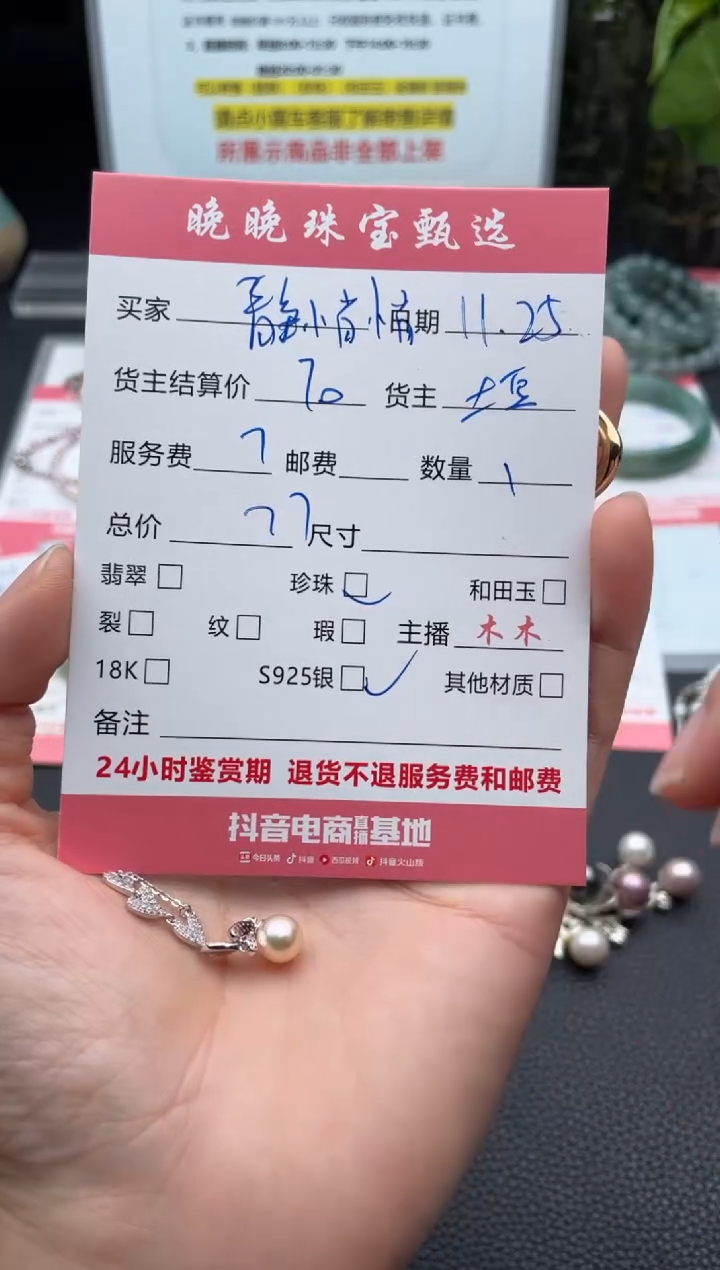 所展示商品非全部上架
晚晚珠宝甄选
买家 静小肖小情 日期 11.25
货主结算价 70 货主 土豆
服务费 7 邮费 数量 1
总价 77 尺寸
翡翠 珍珠 和田玉
裂 纹 瑕 主播 木木
18K S925银 其他材质
备注
24小时鉴赏期 退货不退服务费和邮费
抖音电商直播基地
今日头条 抖音 西瓜视频 抖音火山版